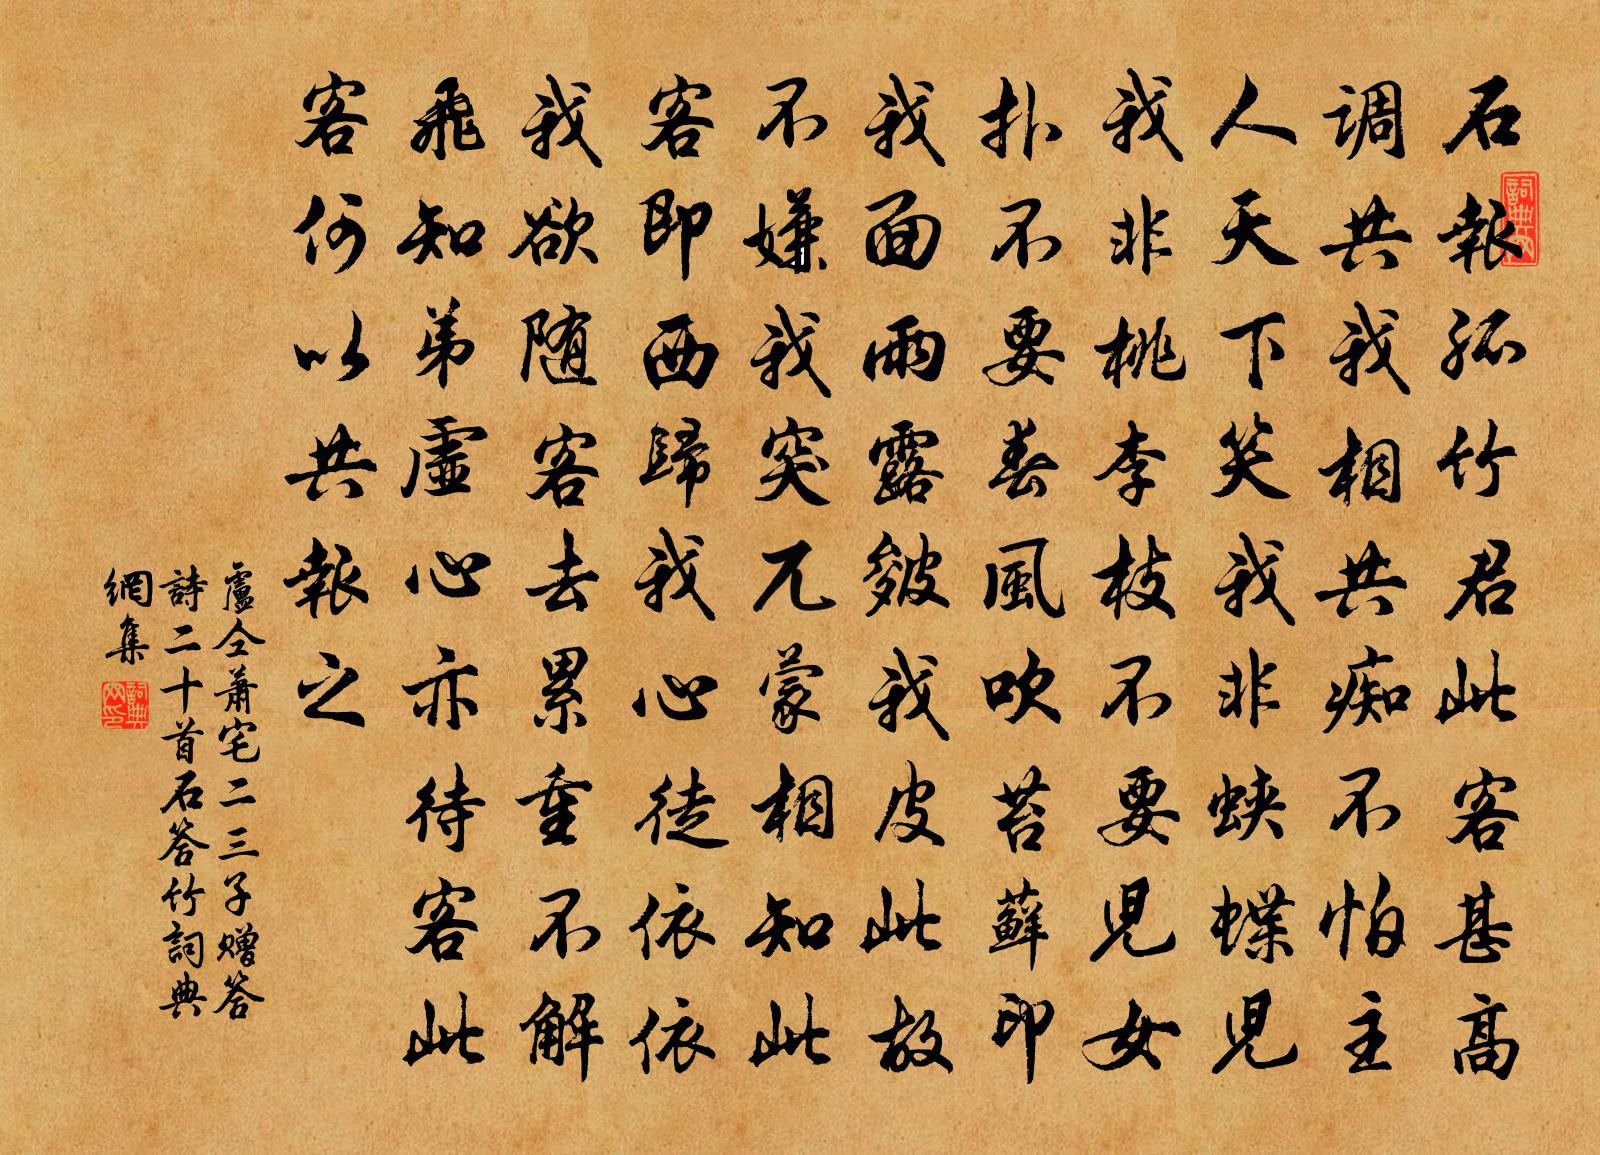 石報孤竹君此客甚高
调共我相共痴不怕主
人天下笑我非蛱蝶兒
我非桃李枝不要兒女
扑不要春風吹苔蘚印
我面雨露皺我皮此故
不嫌我突兀蒙相知此
客即西歸我心徒依依
我欲随客去累重不解
飛知弟虛心亦待客此
客何以共報之
盧仝蕭宅二三子赠答
詩二十首石答竹詞典
網集
詞典网
詞典网印